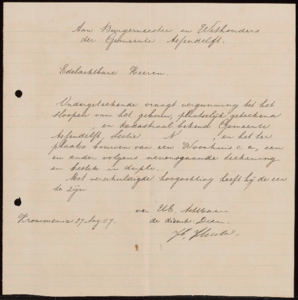 Aan Burgemeester en Wethouders
der Gemeente Assendelft.
Edelachtbare Heeren.
Ondergeteekende vraagt vergunning tot het
sloopen van het gebouw, plaatselijk geteekend
en kadastraal bekend Gemeente
Assendelft, Sectie N en het ter
plaatse bouwen van een Woonhuis c. a., een
en ander volgens nevensgaande teekening
en bestek in duplo.
Met verschuldigde hoogachting heeft hij de eer
te zijn
van UEd. Achtbaren
Krommenie 27 Aug 07. de dienstw. Dien.